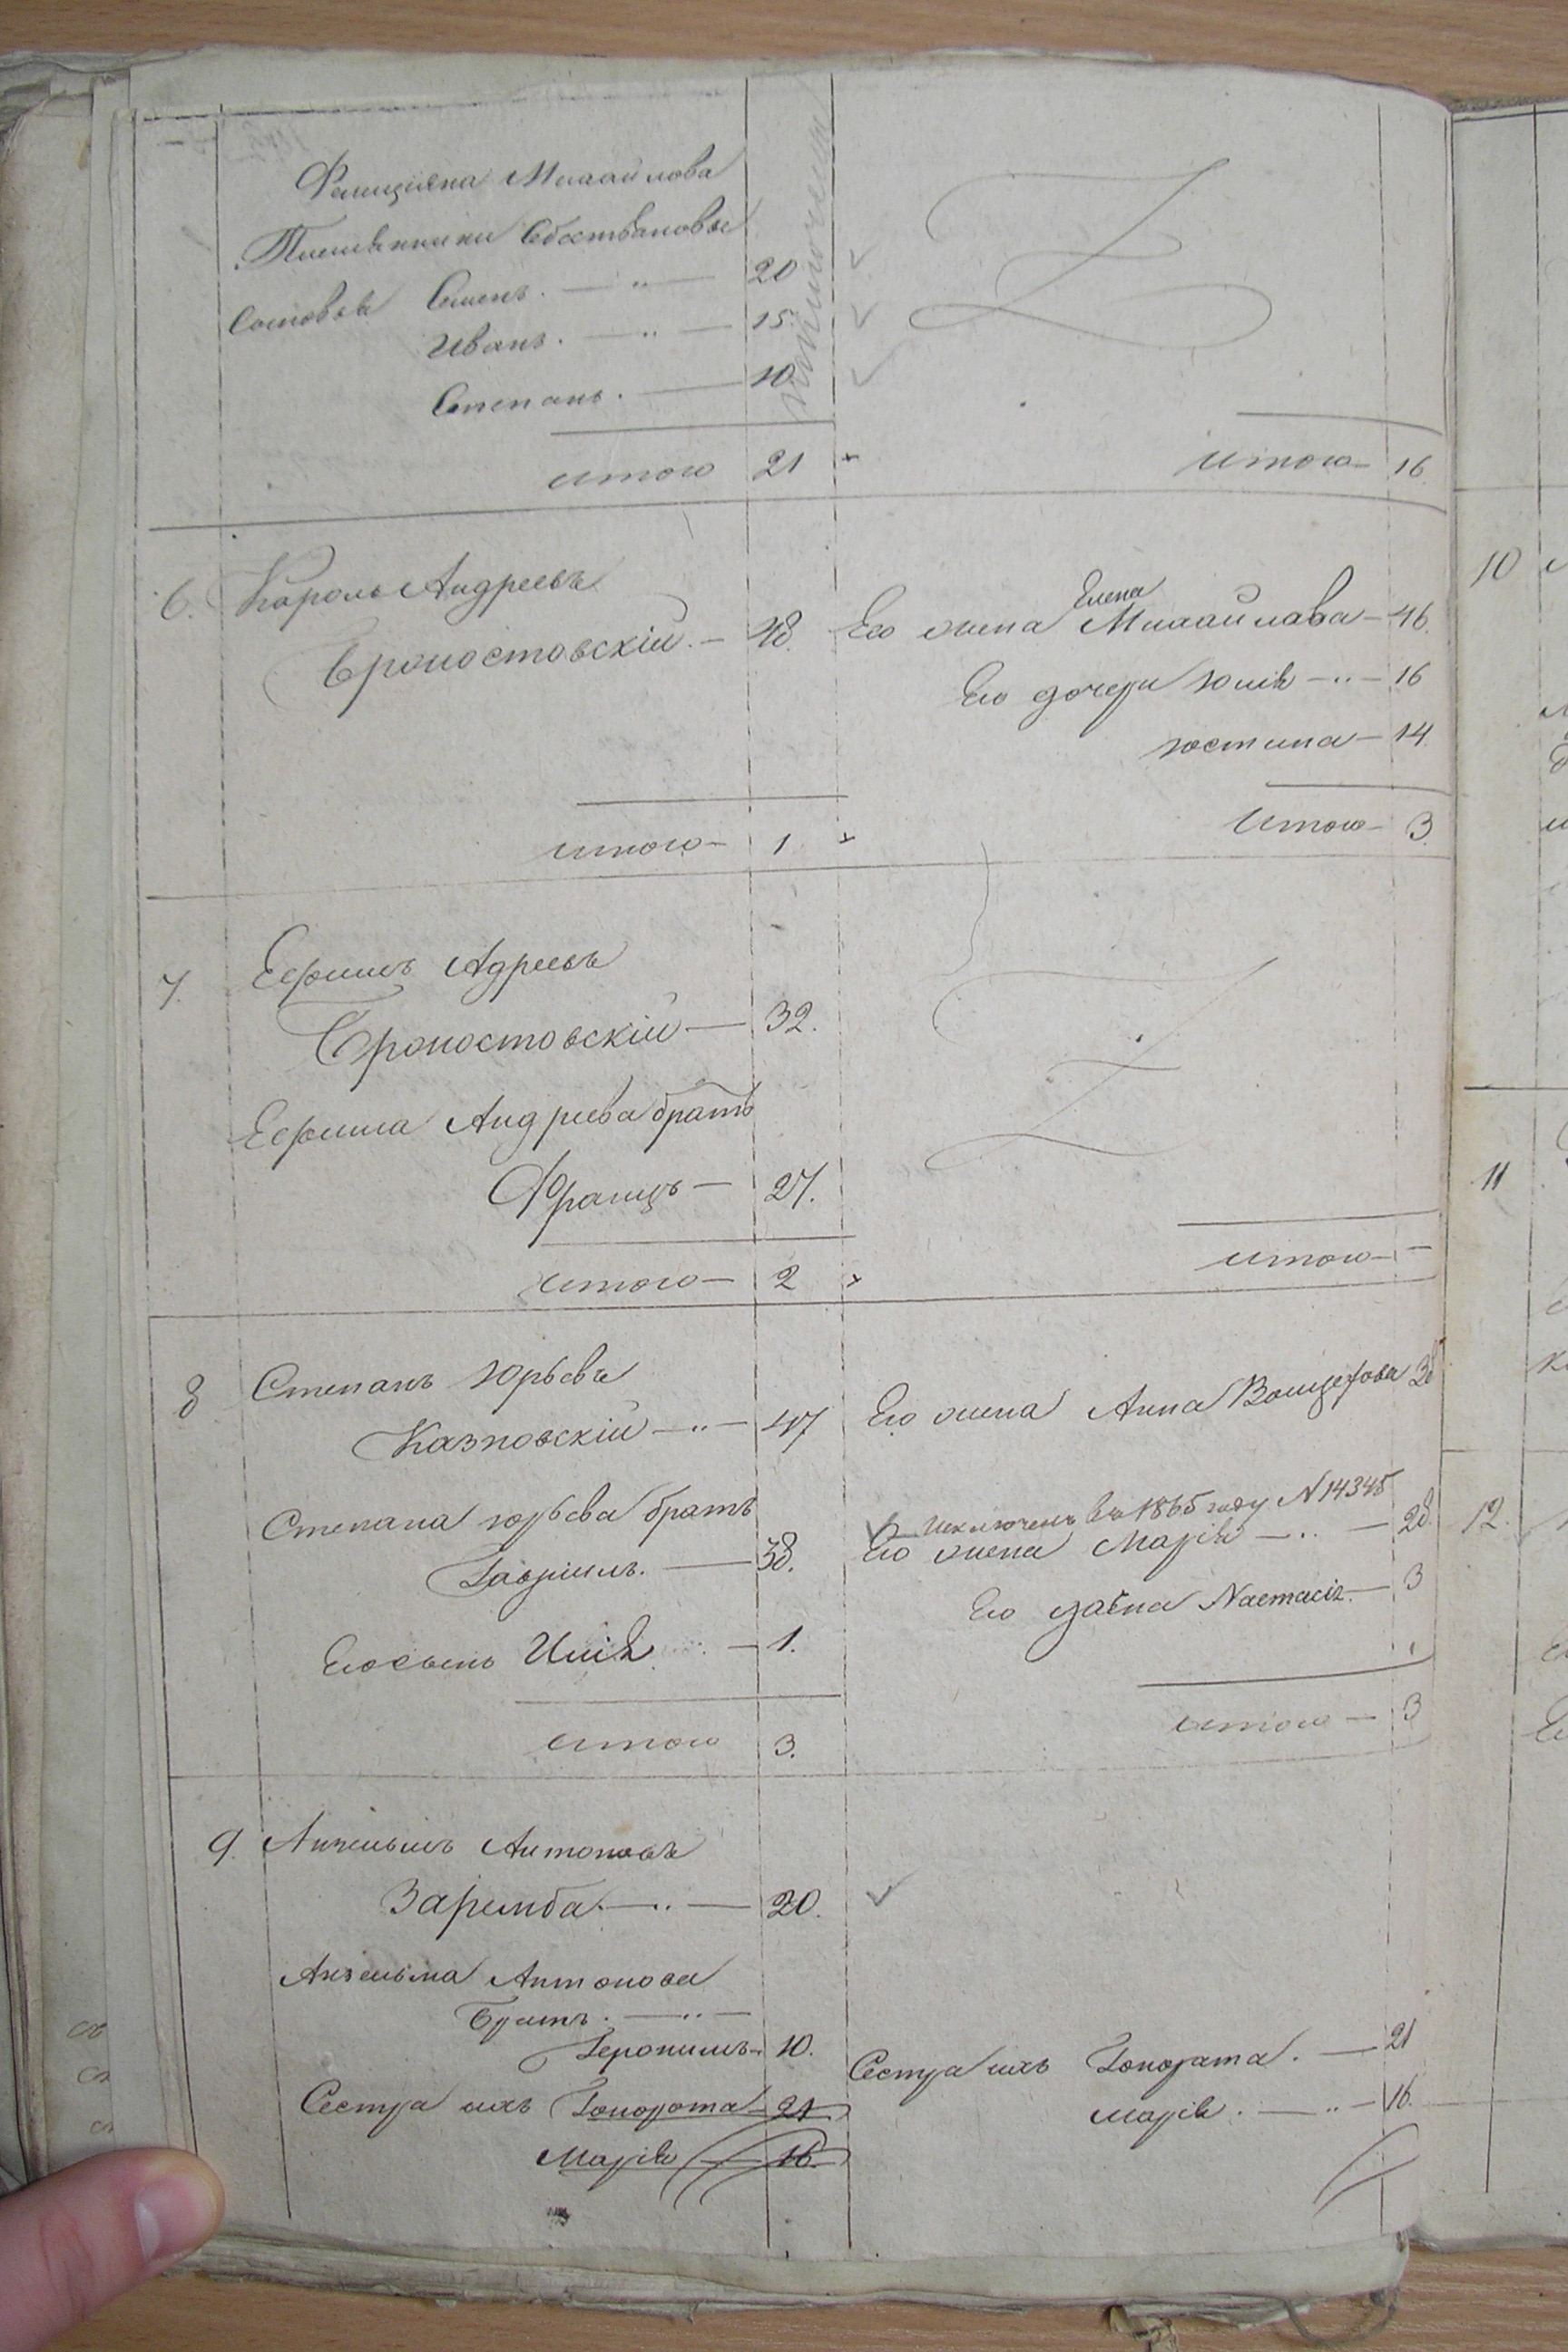 Фелиціяна Михайлова
Племянники Себастьяновы
Сыновья Семенъ. — " — 20
Иванъ. — " — 15.
Степанъ. — 10
исключены
итого 21
итого — 16.
6. Кароль Андреевъ
Броностовскій. — 48.
Елена
Его жена Михайлова — 46.
Его дочери Юлія — " — 16
Юстина — 14.
итого — 1
Итого — 3.
7. Ефимъ Адреевъ
Броностовскій — 32.
Ефима Андреева братъ
Францъ — 27.
итого — 2
итого — —
8 Степанъ Юрьевъ
Казновскій — " — 47
Его жена Анна Войцехова 38
Степана Юрьева братъ
Гаврiилъ. — 38.
Исключенъ въ 1865 году N 14345
Его жена Марія — " — 28.
Его дочка Настасія. — 3
Его сынъ Илія — 1.
итого 3.
итого — 3
9. Анзельмъ Антоновъ
Заремба. — " — 20.
Анзельма Антонова
Братъ. — " —
Геронимъ — 10.
Сестра ихъ Гонората — 21
Марія — 16.
Сестра ихъ Гонората. — 21
Марія. — " — 16.
10
11
12.